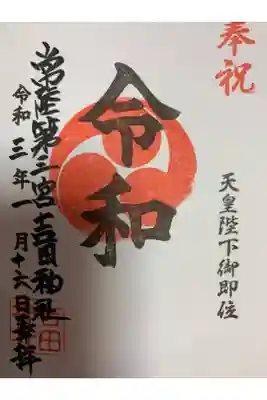 奉祝
天皇陛下御即位
令和
常陸第三宮吉田神社
令和三年一月十六日奉拝